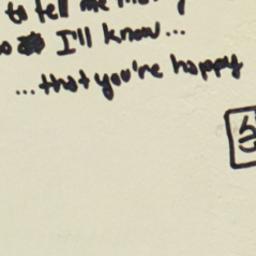 to tell me
I'll know...
...that you're happy